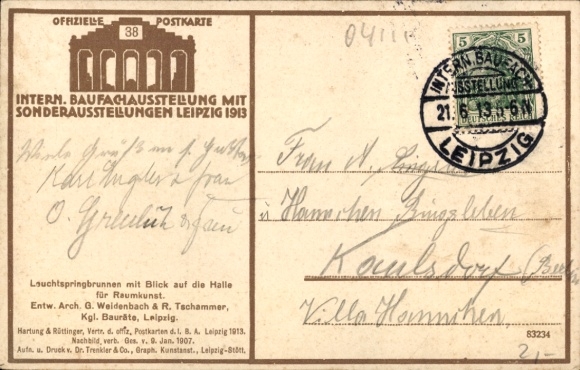 OFFIZIELLE POSTKARTE
38
INTERN. BAUFACHAUSSTELLUNG MIT
SONDERAUSSTELLUNGEN LEIPZIG 1913
5 5
INTERN. BAUFACH
AUSSTELLUNG
21.6.13
DEUTSCHES REICH
LEIPZIG
Viele Grüße
Karl u Frau
O. u Frau
Frau A.
u Hannchen Bingsleben
Kaulsdorf (Berlin
Villa Hannchen
Leuchtspringbrunnen mit Blick auf die Halle
für Raumkunst.
Entw. Arch. G. Weidenbach & R. Tschammer,
Kgl. Bauräte, Leipzig.
Hartung & Rüttinger, Vertr. d. offiz. Postkarten d. I. B. A. Leipzig 1913.
Nachbild. verb. Ges. v. 9. Jan. 1907.
Aufn. u. Druck v. Dr. Trenkler & Co., Graph. Kunstanst., Leipzig-Stött.
83234
2,-